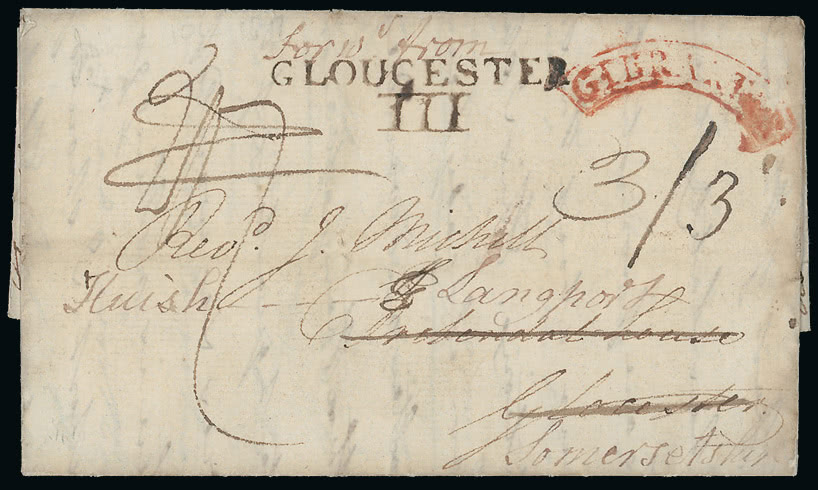 Forwd from
GLOUCESTER
III
GIBRALTAR
3/3
Revd. J. Michell
Huish Langport
Prebendal house
Glocester
Somersetshire